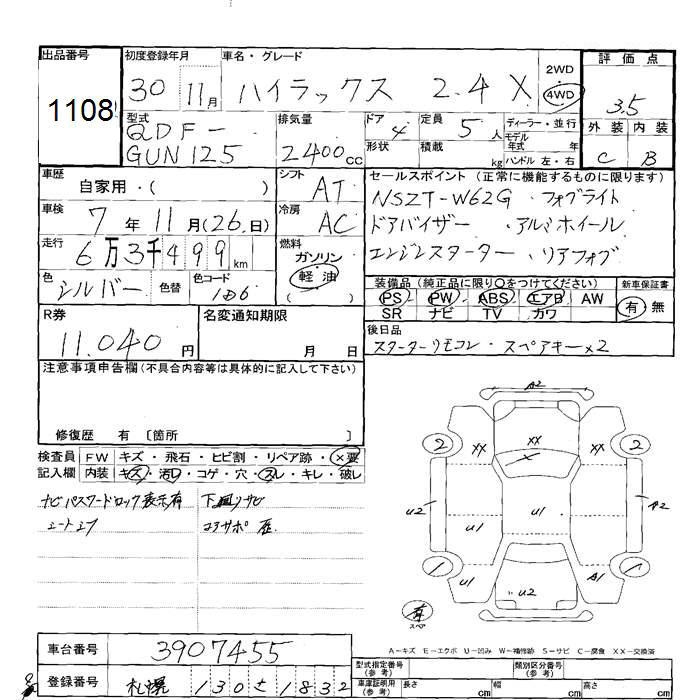 出品番号
1108
初度登録年月
30 11月
車名・グレード
ハイラックス 2.4 X
2WD
4WD
評価点
3.5
外装 内装
C B
型式
QDF-
GUN125
排気量
2400cc
ドア
4
定員
5人
形状
積載
kg
ディーラー・並行
モデル
年式 年
ハンドル 左・右
車歴
自家用・( )
シフト
AT
車検
7年11月(26日)
冷房
AC
走行
6万3千499km
燃料
ガソリン
軽・油
( )
色
シルバー
色替
色コード
1D6
セールスポイント(正常に機能するものに限ります)
NSZT-W62G ・フォグライト
ドアバイザー ・アルミホイール
エンジンスターター ・リアフォグ
装備品(純正品に限り○をつけてください)
PS PW ABS エアB AW
SR ナビ TV カワ
新車保証書
有 無
R券
11,040円
名変通知期限
月 日
後日品
スターターリモコン・スペアキー×2
注意事項申告欄(不具合内容等は具体的に記入して下さい)
修復歴 有 〔箇所 〕
検査員
記入欄
FW キズ・飛石・ヒビ割・リペア跡・×要
内装 キズ・汚レ・コゲ・穴・スレ・キレ・破レ
ナビパスワードロック表示有
下廻りサビ
コアサポ
A2
2 XX XX XX 2
U2 U1 U1 A2
1 U1 U2 A1 1
有
スペア
A－キズ E－エクボ U－凹み W－補修跡 S－サビ C－腐食 XX－交換済
車台番号
3907455
登録番号
札幌 130 さ 1832
型式指定番号
(参考)
類別区分番号
(参考)
車庫証明用
(参考)
長さ cm 幅 cm 高さ cm